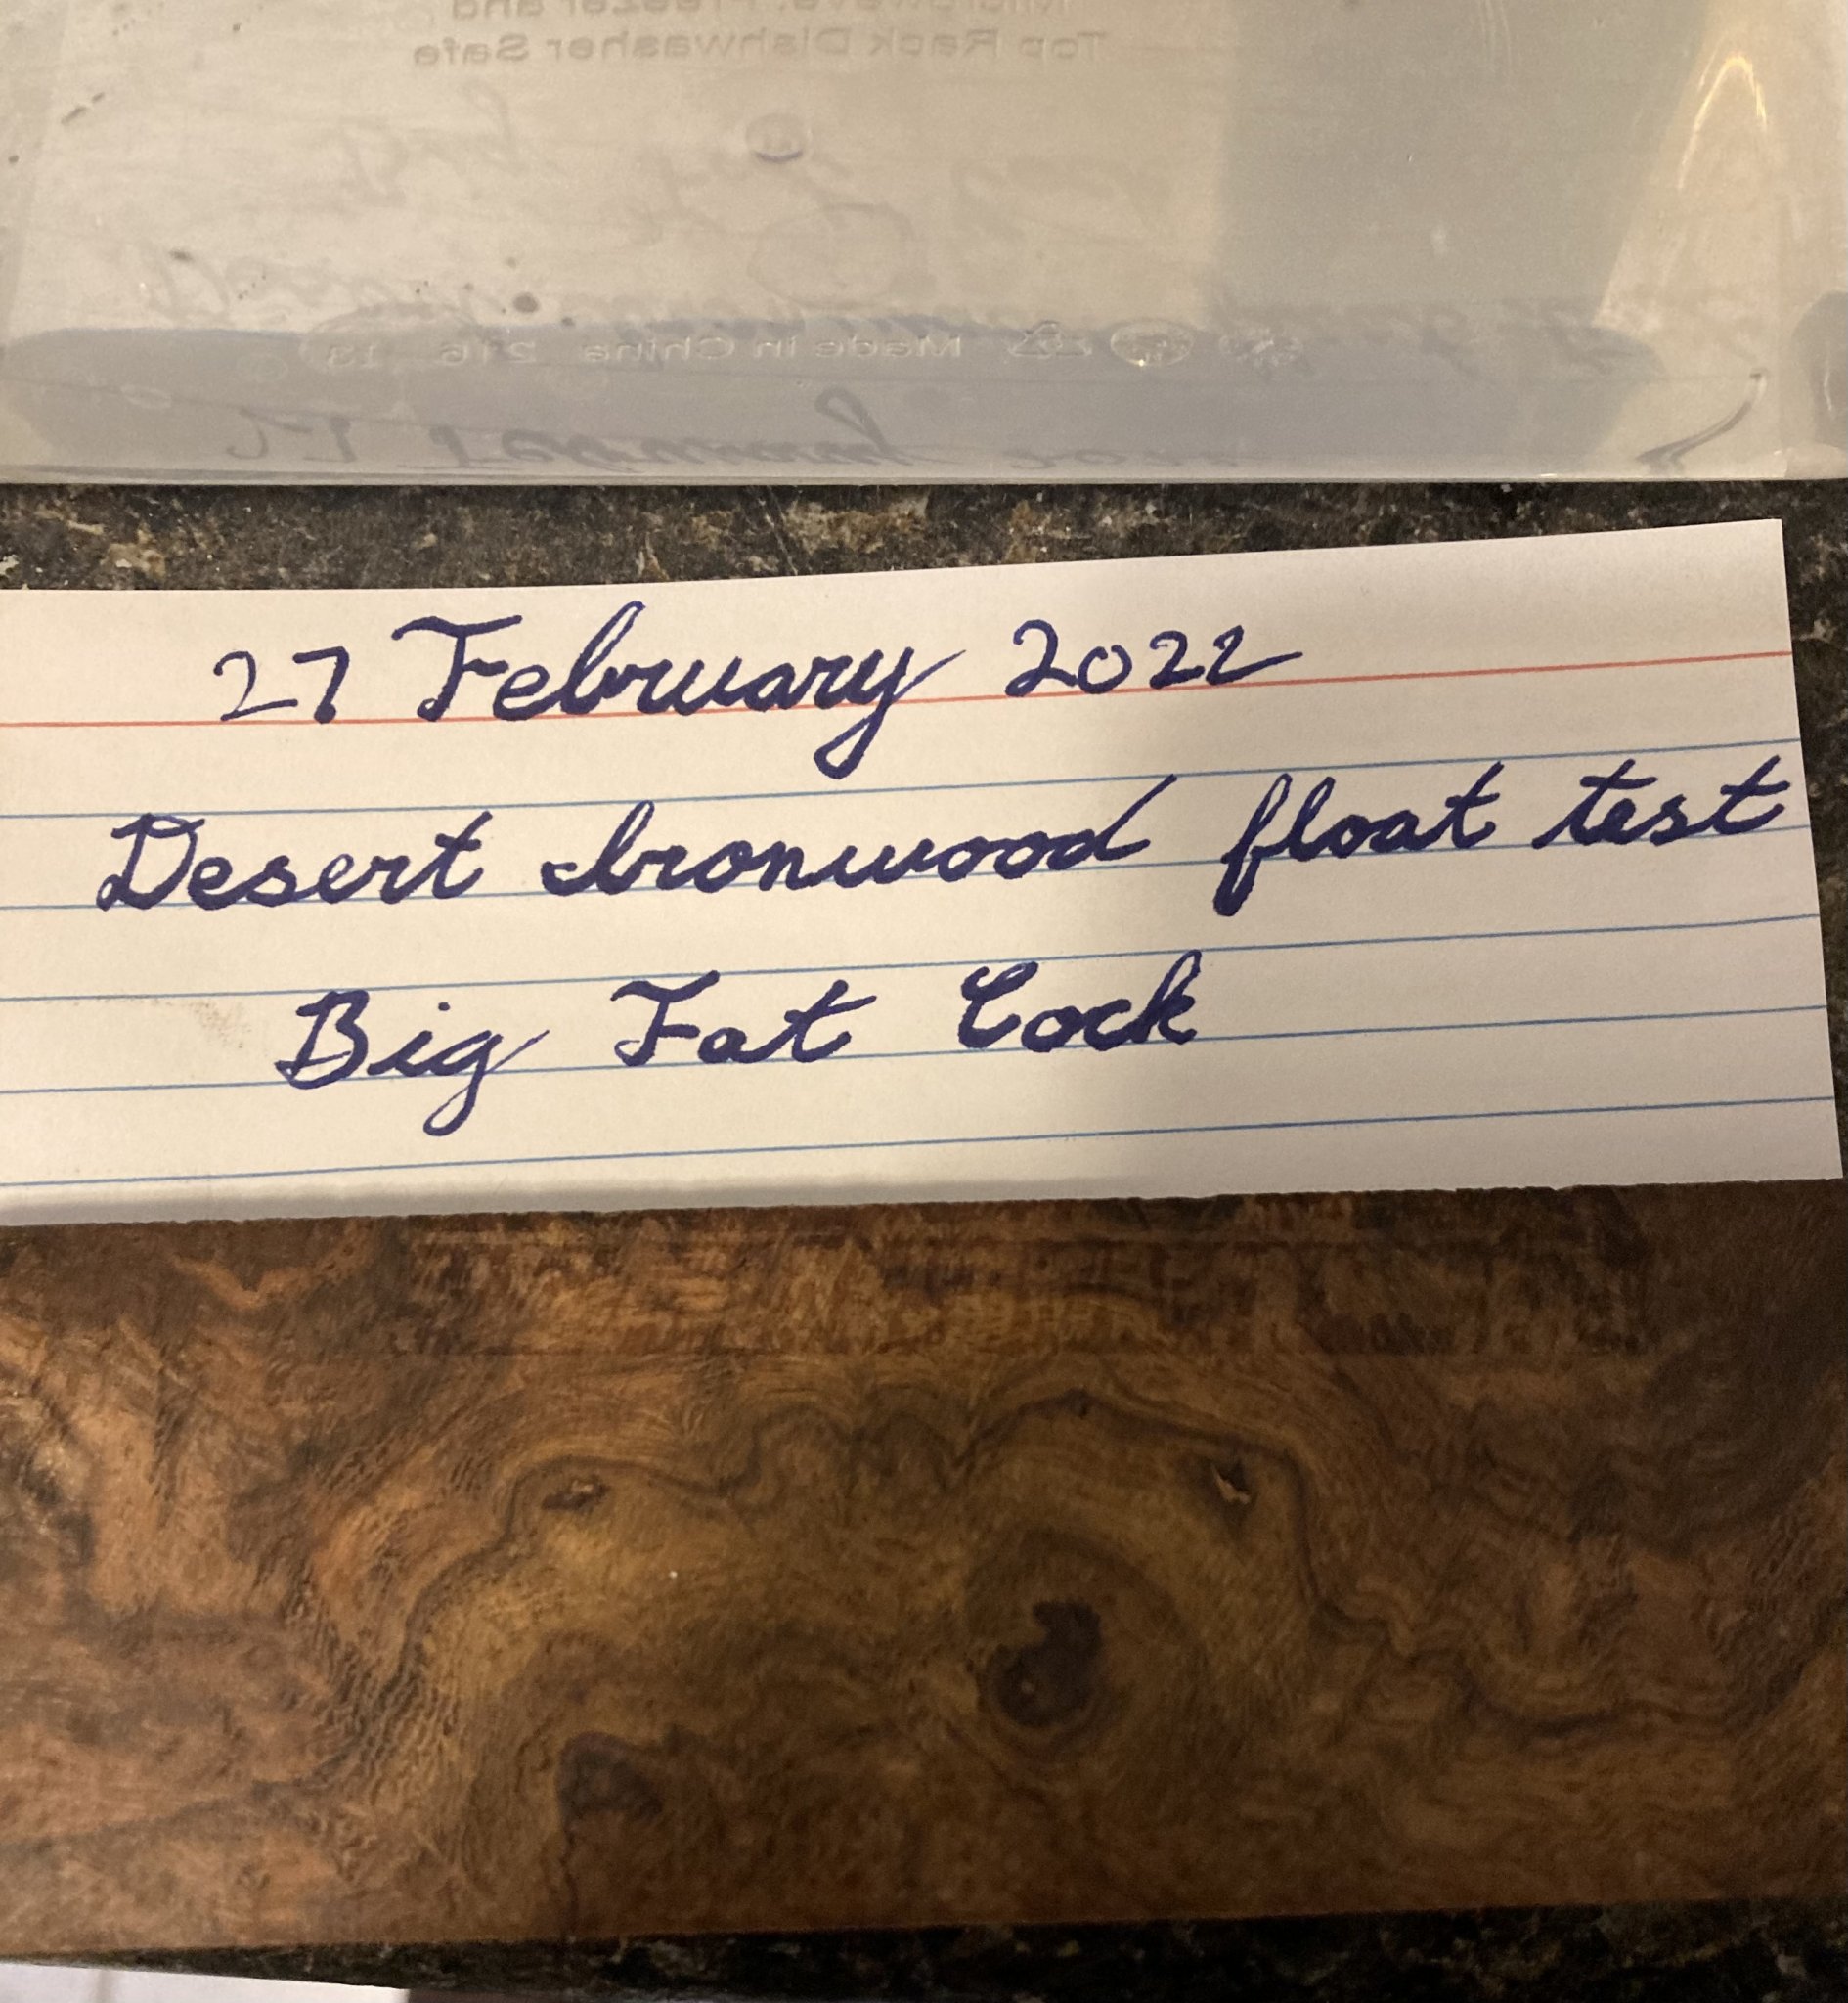 Microwave, Freezer and
Top Rack Dishwasher Safe
Made in China 216 13
27 February 2022
27 February 2022
Desert Ironwood float test
Big Fat Cock